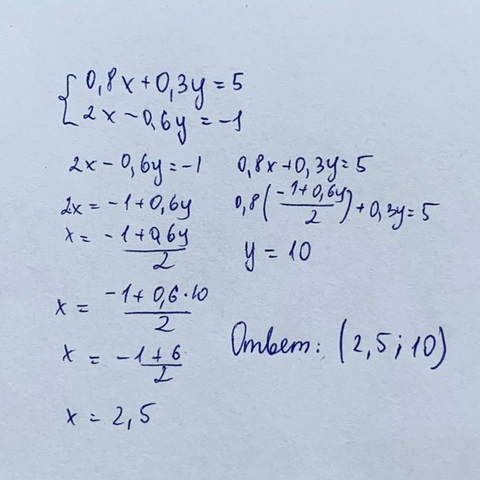 {0,8x+0,3y=5
2x-0,6y=-1
2x-0,6y=-1
2x=-1+0,6y
x=-1+0,6y/2
x=-1+0,6·10/2
x=-1+6/2
x=2,5
0,8x+0,3y=5
0,8(-1+0,6y/2)+0,3y=5
y=10
Ответ: (2,5;10)